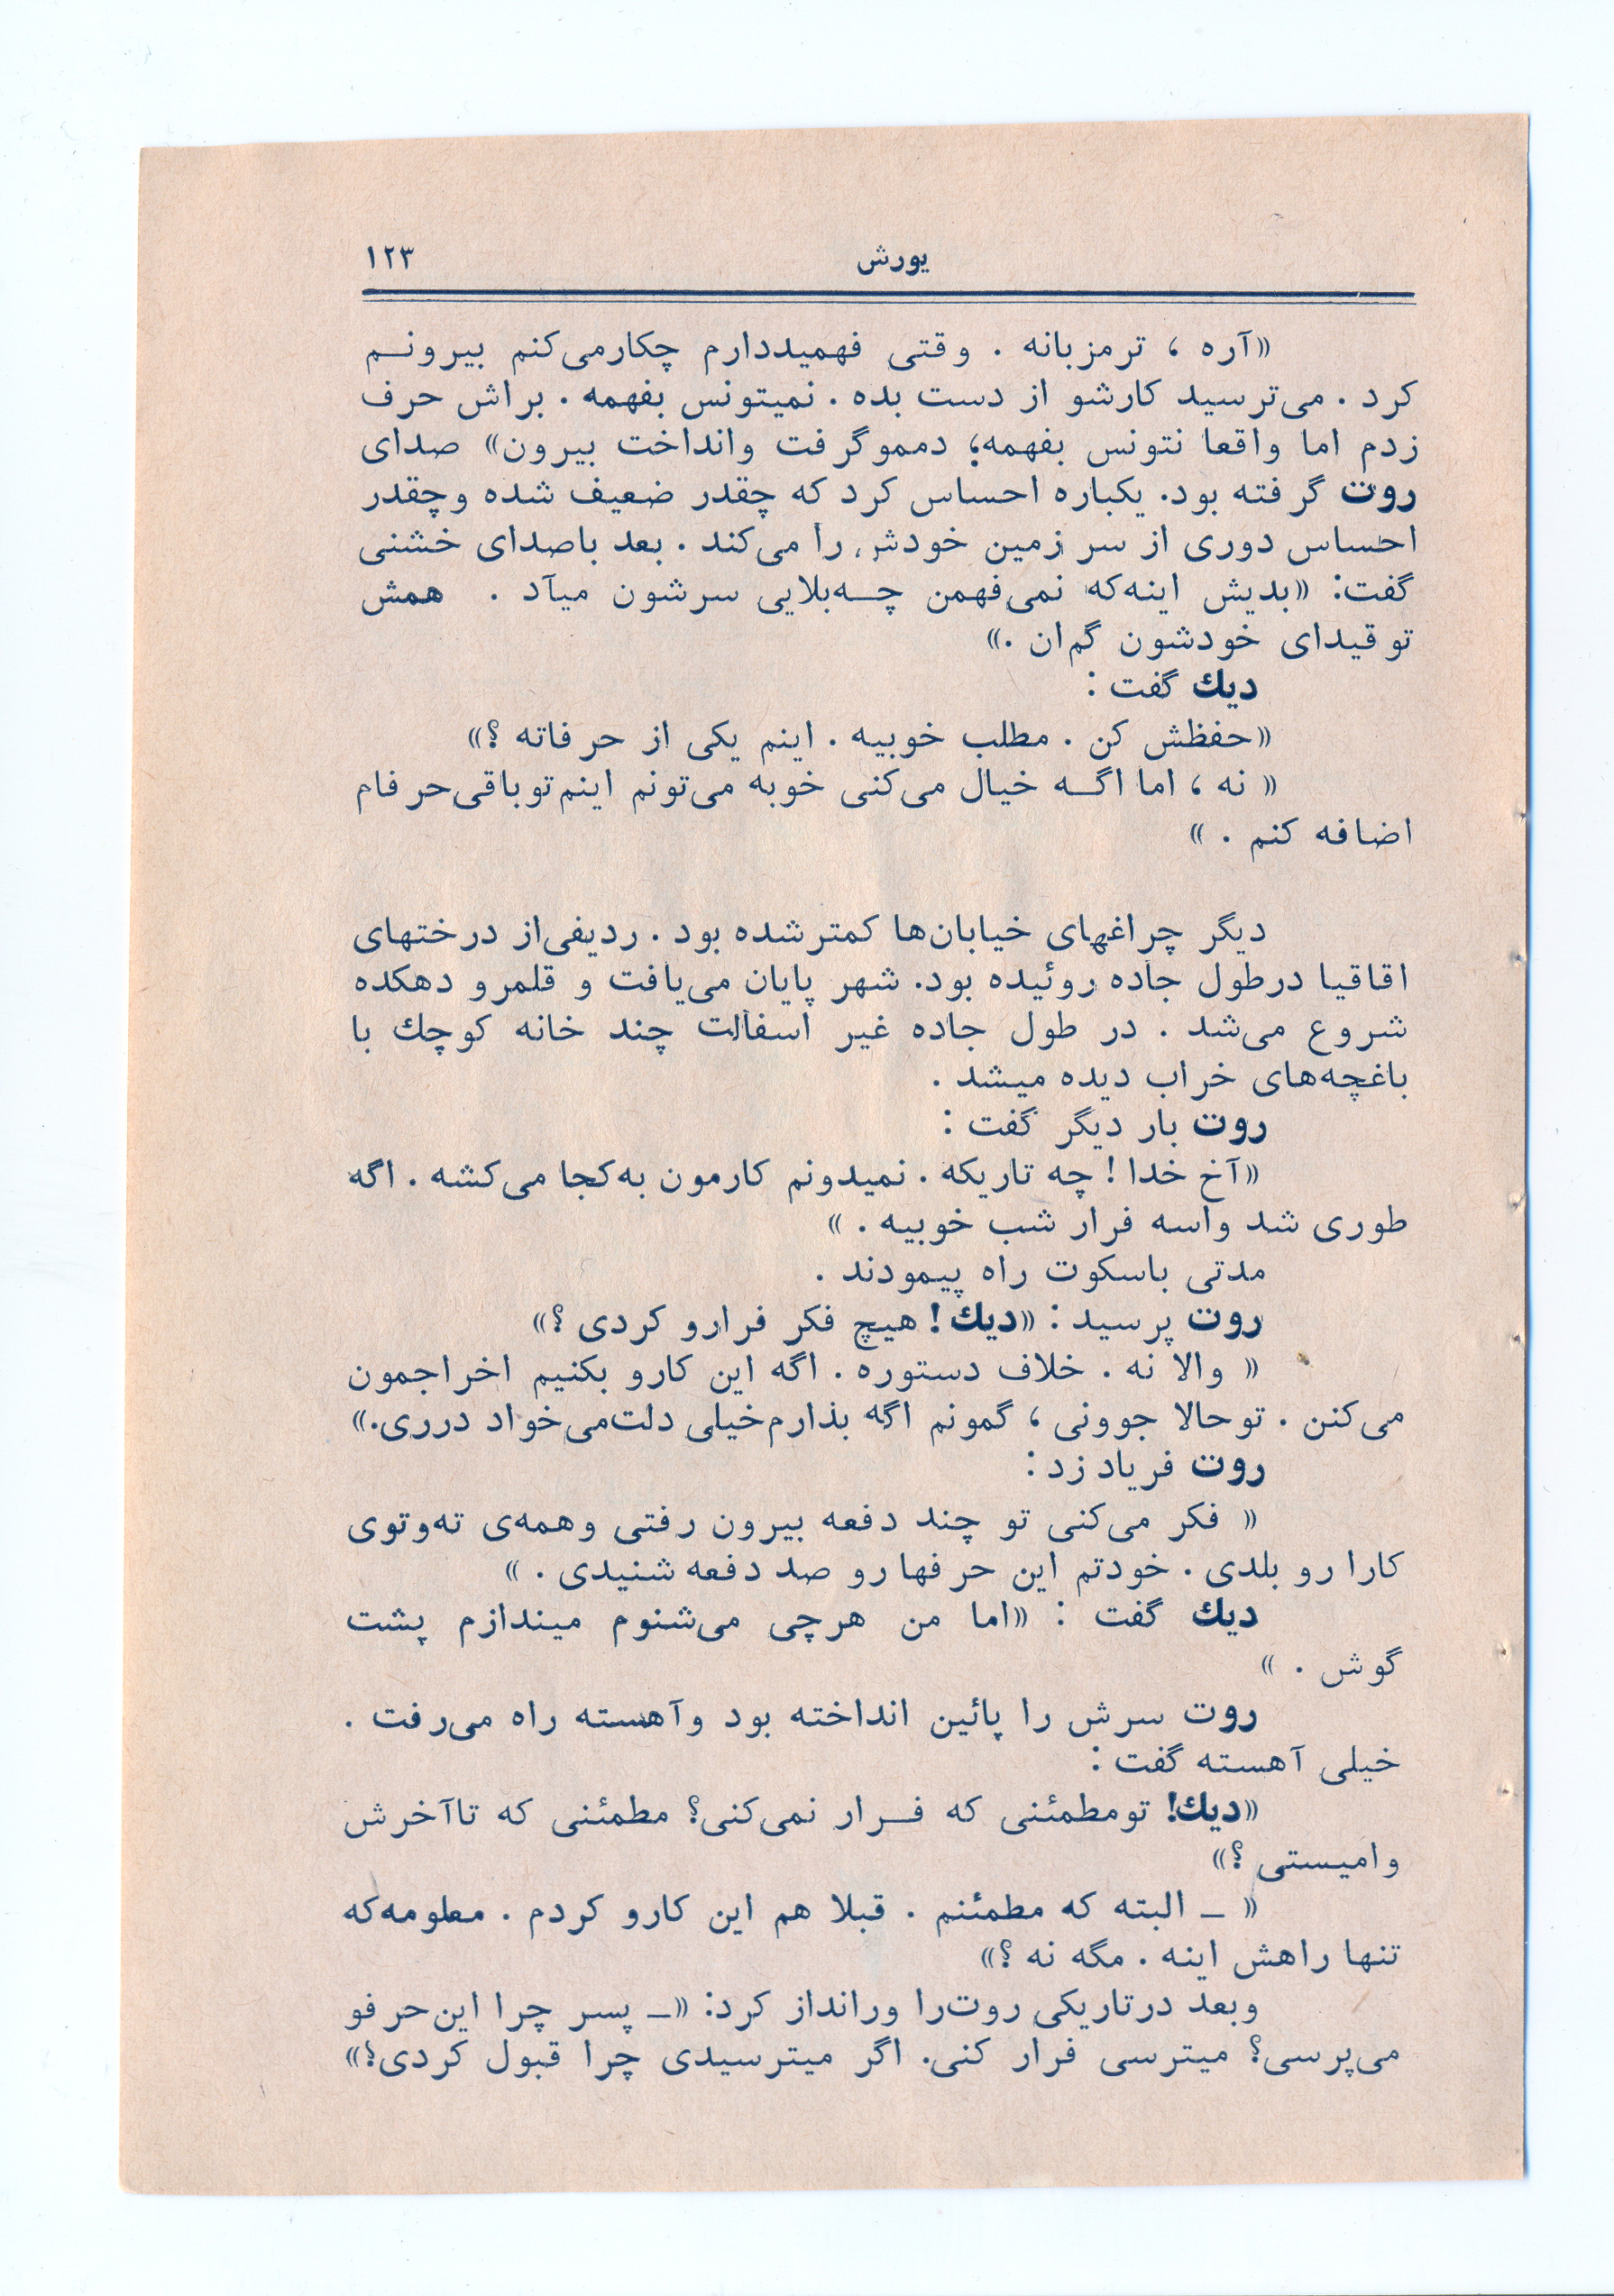 یورش ۱۲۳
«آره ، ترمزبانه . وقتی فهمیددارم چکارمی‌کنم بیرونم
کرد . می‌ترسید کارشو از دست بده . نمیتونس بفهمه . براش حرف
زدم اما واقعا نتونس بفهمه؛ دمموگرفت وانداخت بیرون» صدای
روت گرفته بود. یکباره احساس کرد که چقدر ضعیف شده وچقدر
احساس دوری از سر زمین خودش را می‌کند . بعد باصدای خشنی
گفت: «بدیش اینه‌که نمی‌فهمن چه‌بلایی سرشون میآد . همش
تو قیدای خودشون گم‌ان .»
دیك گفت :
«حفظش کن . مطلب خوبیه . اینم یکی از حرفاته ؟»
« نه ، اما اگه خیال می‌کنی خوبه می‌تونم اینم‌توباقی‌حرفام
اضافه کنم . »
دیگر چراغهای خیابان‌ها کمترشده بود . ردیفی‌از درختهای
اقاقیا درطول جاده روئیده بود. شهر پایان می‌یافت و قلمرو دهکده
شروع می‌شد . در طول جاده غیر اسفالت چند خانه کوچك با
باغچه‌های خراب دیده میشد .
روت بار دیگر گفت :
«آخ خدا ! چه تاریکه . نمیدونم کارمون به‌کجا می‌کشه . اگه
طوری شد واسه فرار شب خوبیه . »
مدتی باسکوت راه پیمودند .
روت پرسید : «دیك ! هیچ فکر فرارو کردی ؟»
« والا نه . خلاف دستوره . اگه این کارو بکنیم اخراجمون
می‌کنن . توحالا جوونی ، گمونم اگه بذارم‌خیلی دلت‌می‌خواد درری.»
روت فریاد زد :
« فکر می‌کنی تو چند دفعه بیرون رفتی وهمه‌ی ته‌وتوی
کارا رو بلدی . خودتم این حرفها رو صد دفعه شنیدی . »
دیك گفت : «اما من هرچی می‌شنوم میندازم پشت
گوش . »
روت سرش را پائین انداخته بود وآهسته راه می‌رفت .
خیلی آهسته گفت :
«دیك! تومطمئنی که فرار نمی‌کنی؟ مطمئنی که تاآخرش
وامیستی ؟»
« ــ البته که مطمئنم . قبلا هم این کارو کردم . معلومه‌که
تنها راهش اینه . مگه نه ؟»
وبعد درتاریکی روت‌را ورانداز کرد: «ــ پسر چرا این‌حرفو
می‌پرسی؟ میترسی فرار کنی. اگر میترسیدی چرا قبول کردی؟»